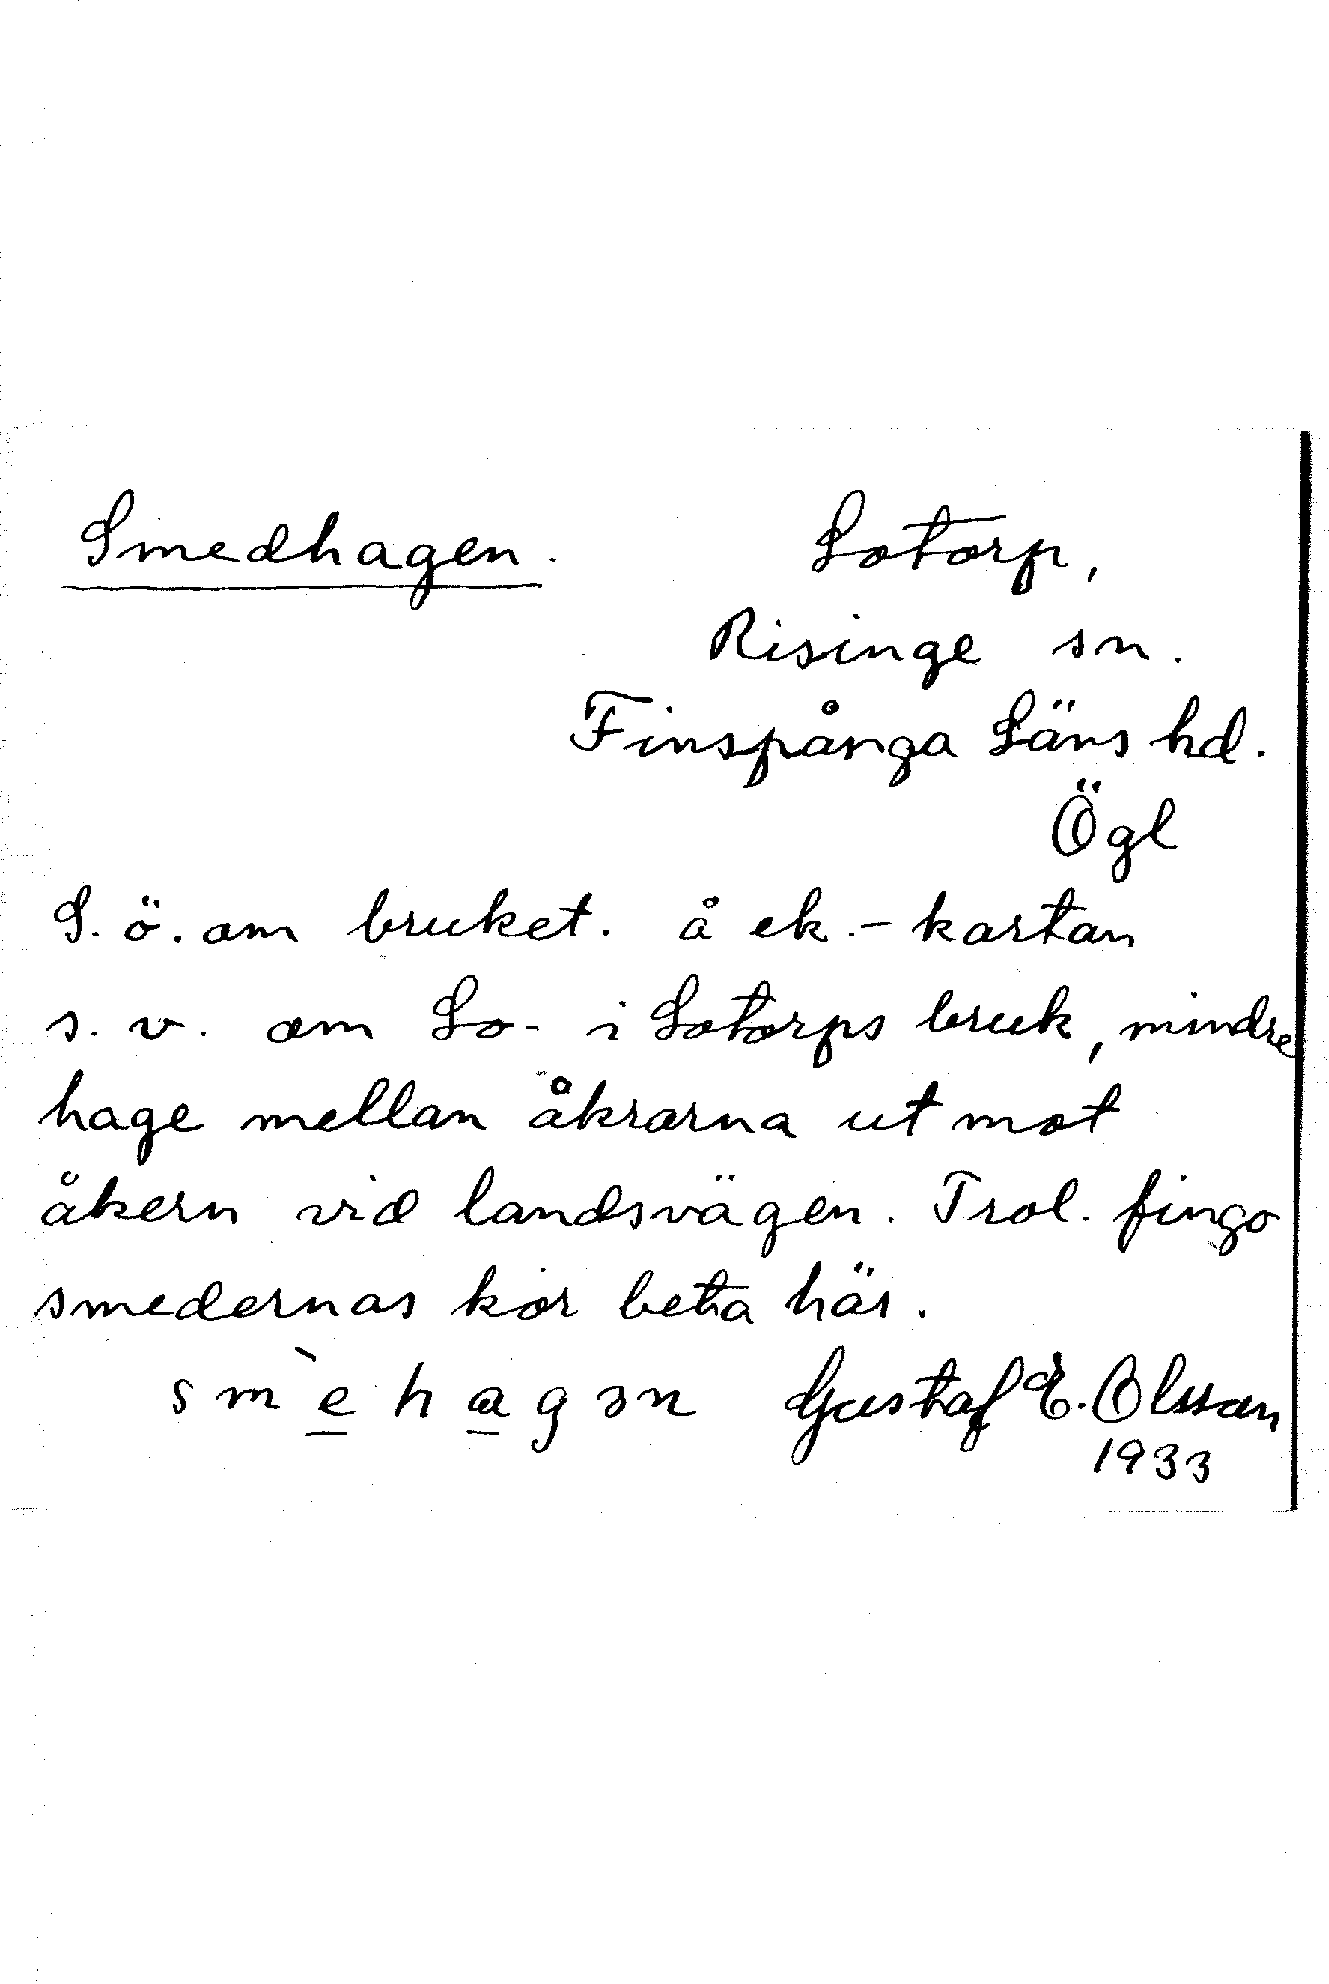 Smedhagen. Lotorp,
Risinge sn.
Finspånga Läns hd.
Ögl
S. ö. om bruket. å ek.-kartan
s. v. om Lo- i Lotorps bruk, mindre
hage mellan åkrarna ut mot
åkern vid landsvägen. Trol. fingo
smedernas kor beta här.
smèhagən Gustaf E. Olsson
1933